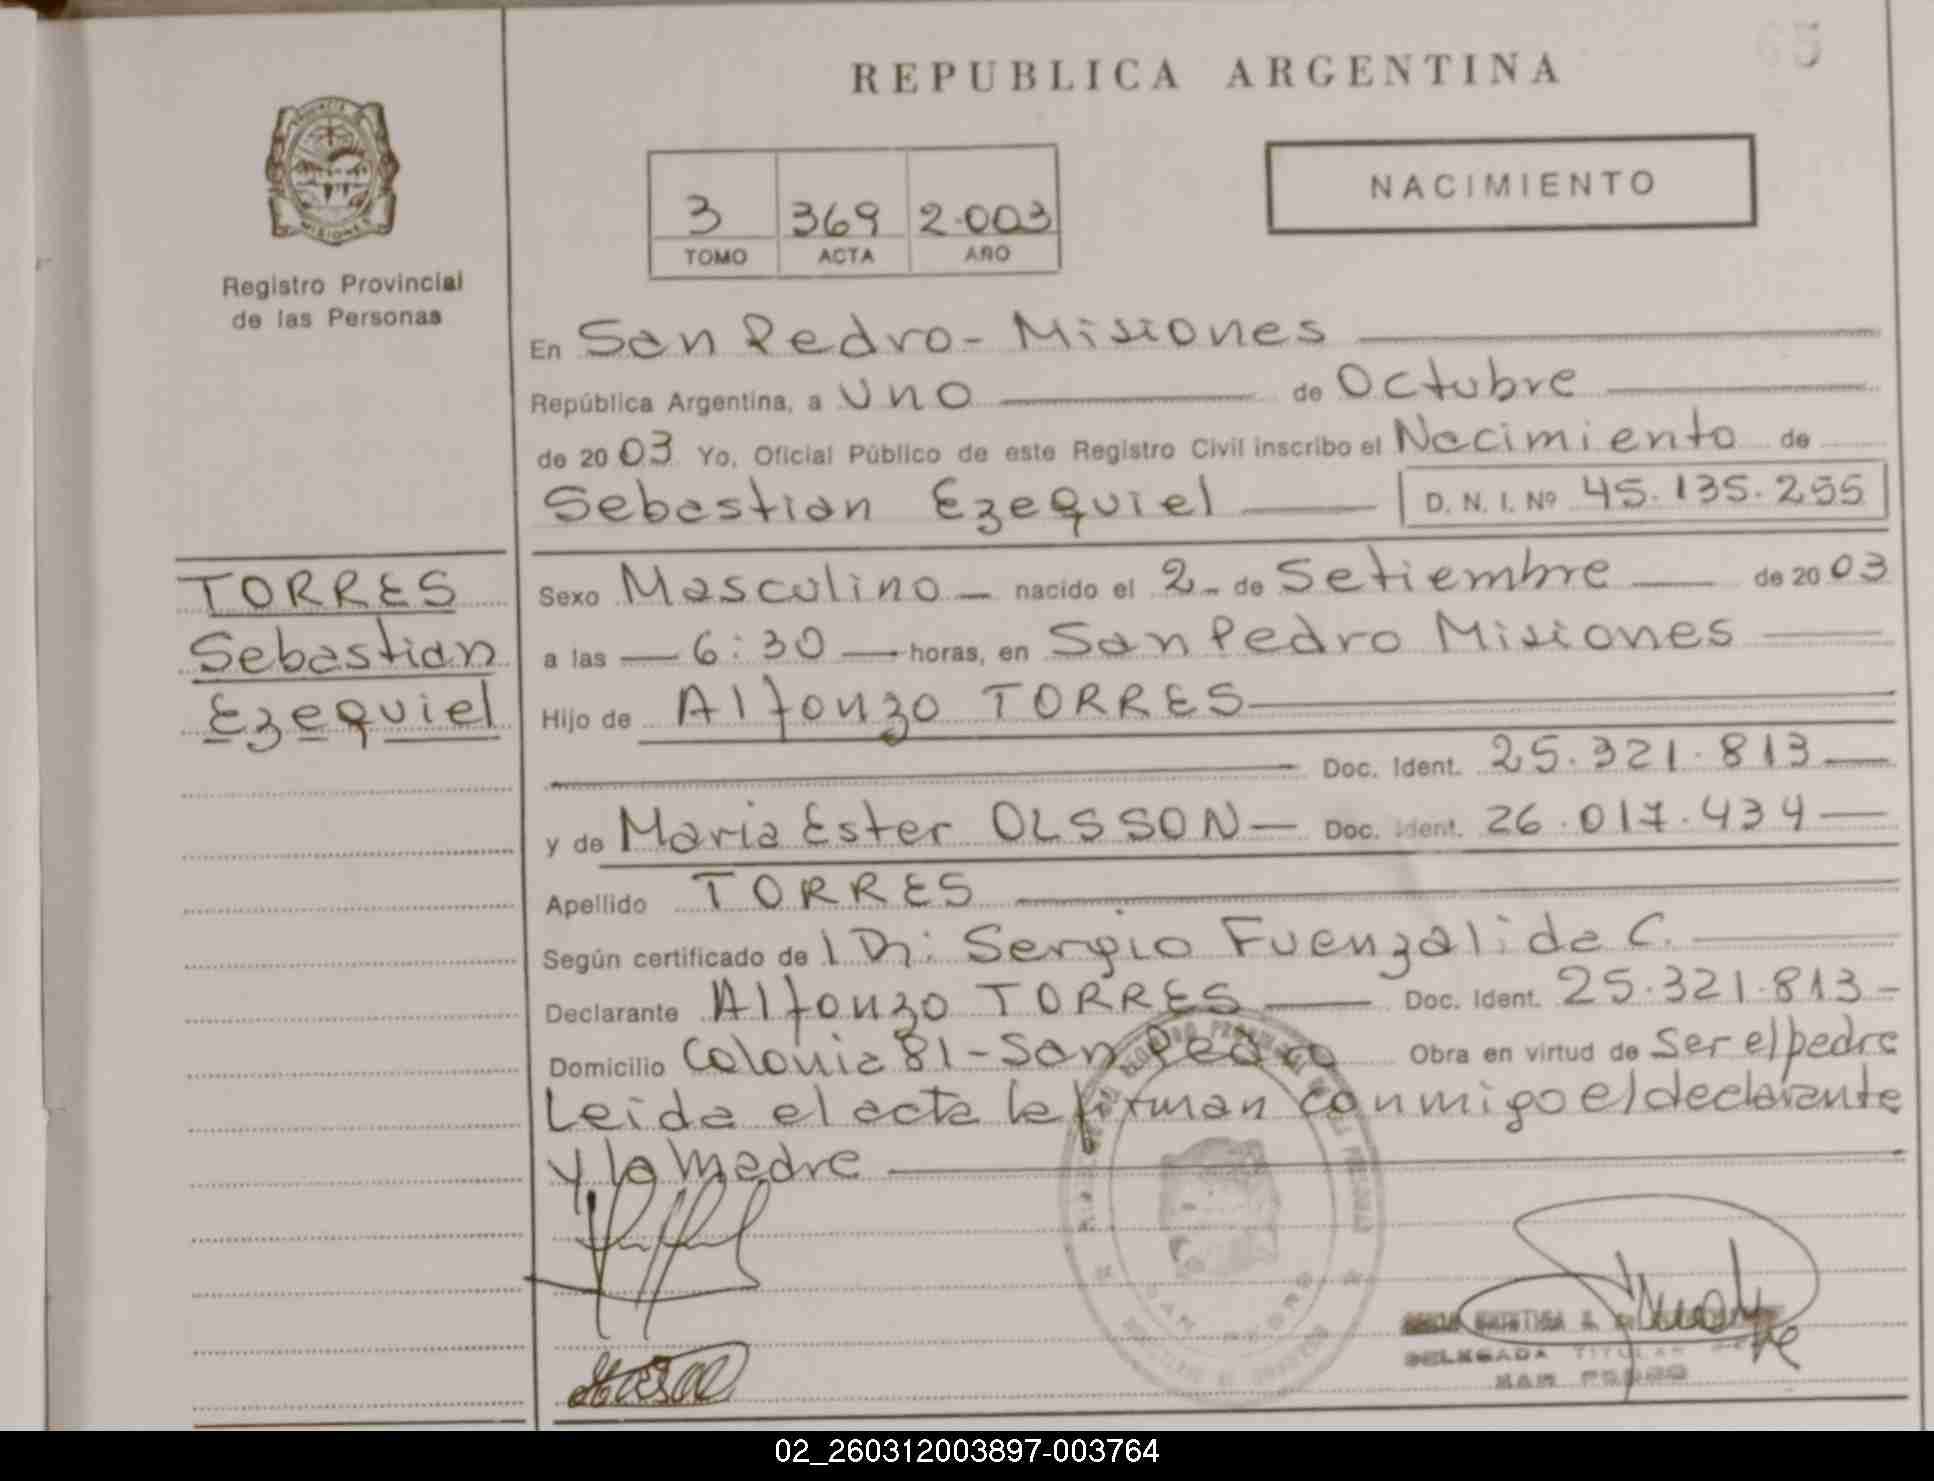 65
REPUBLICA ARGENTINA
NACIMIENTO
3 369 2.003
TOMO ACTA AÑO
MISIONES
Registro Provincial
de las Personas
En San Pedro - Misiones
República Argentina, a Uno de Octubre
de 2003 Yo, Oficial Público de este Registro Civil inscribo el Nacimiento de
Sebastian Ezequiel D. N. I. Nº 45.135.255
TORRES
Sebastian
Ezequiel
Sexo Masculino nacido el 2 - de Setiembre de 2003
a las 6:30 horas, en San Pedro Misiones
Hijo de Alfonzo TORRES
Doc. Ident. 25.321.813
y de Maria Ester OLSSON Doc. Ident. 26.017.434
Apellido TORRES
Según certificado de l Dr: Sergio Fuenzalida C.
Declarante Alfonzo TORRES Doc. Ident. 25.321.813 -
Domicilio Colonia 81 - San Pedro Obra en virtud de Ser el padre
Leida el acta la firman conmigo el declarante
y la madre
SAN PEDRO
DELEGADA TITULAR
SAN PEDRO
02_260312003897-003764